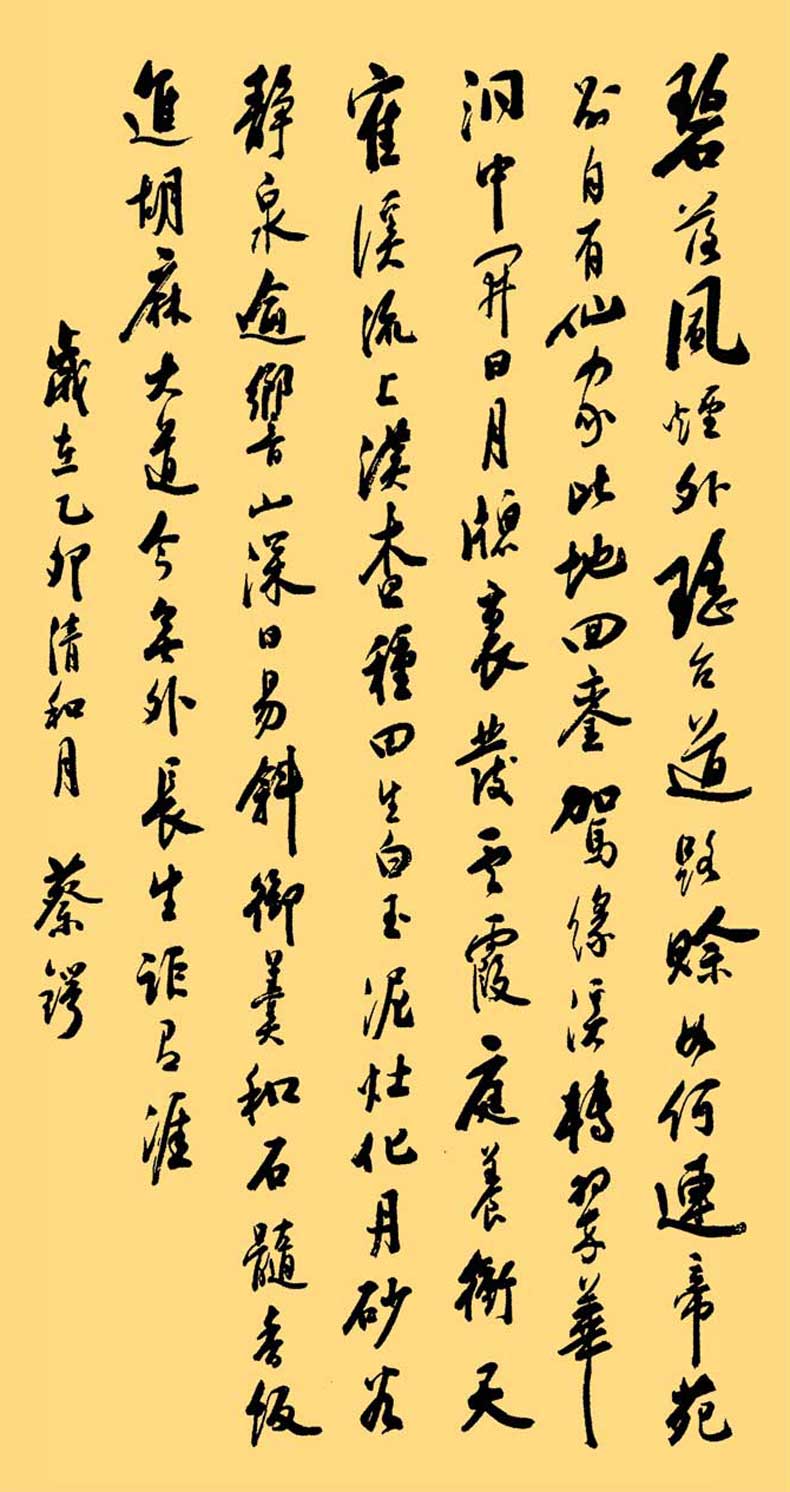 碧落風煙外瑤台道路賒如何連帝苑
别自有仙家此地回鑾駕緣溪轉翠華
洞中開日月牕裏發雲霞庭養衝天
寉溪流上漢查種田生白玉泥灶化丹砂谷
靜泉逾響山深日易斜御羹和石髓香飯
進胡麻大道今無外長生詎有涯
歲在乙卯清和月 蔡鍔